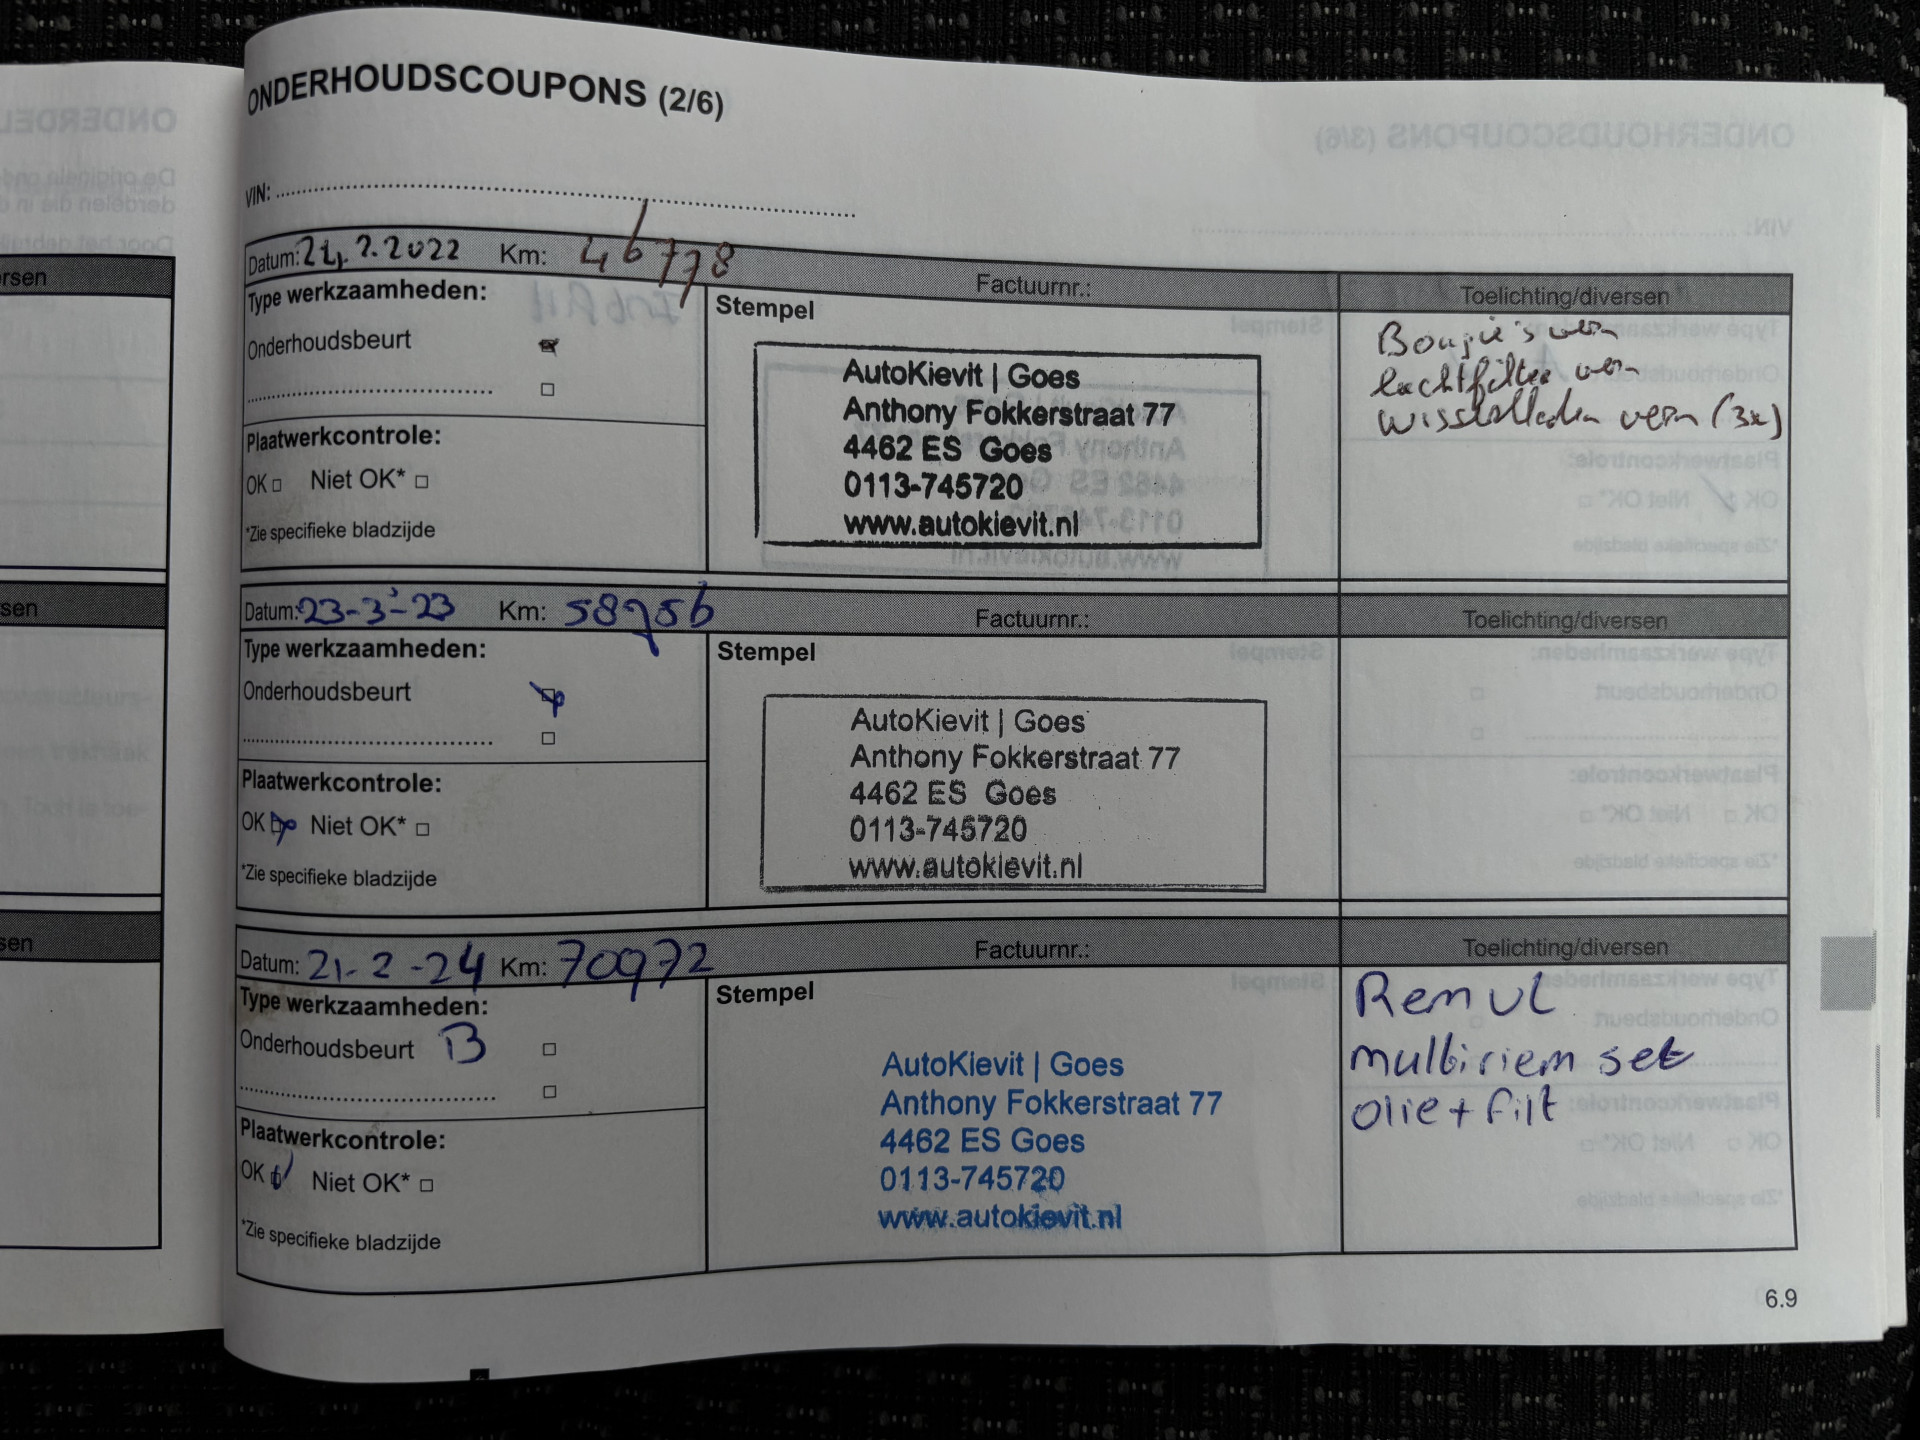 ONDERHOUDSCOUPONS (2/6)
VIN:
Datum: 2.2022 Km: 46778 Factuurnr.: Toelichting/diversen
Type werkzaamheden:
Stempel
Onderhoudsbeurt
Plaatwerkcontrole:
OK Niet OK*
*Zie specifieke bladzijde
AutoKievit | Goes
Anthony Fokkerstraat 77
4462 ES Goes
0113-745720
www.autokievit.nl
Bougie's vern
luchtfilter vern
wisserbladen vern (3x)
Datum: 23-3-23 Km: 58956 Factuurnr.: Toelichting/diversen
Type werkzaamheden:
Stempel
Onderhoudsbeurt
Plaatwerkcontrole:
OK Niet OK*
*Zie specifieke bladzijde
AutoKievit | Goes
Anthony Fokkerstraat 77
4462 ES Goes
0113-745720
www.autokievit.nl
Datum: 21-2-24 Km: 70972 Factuurnr.: Toelichting/diversen
Type werkzaamheden:
Stempel
Onderhoudsbeurt B
Plaatwerkcontrole:
OK Niet OK*
*Zie specifieke bladzijde
AutoKievit | Goes
Anthony Fokkerstraat 77
4462 ES Goes
0113-745720
www.autokievit.nl
Rem vl
multiriem set
olie + filt
6.9